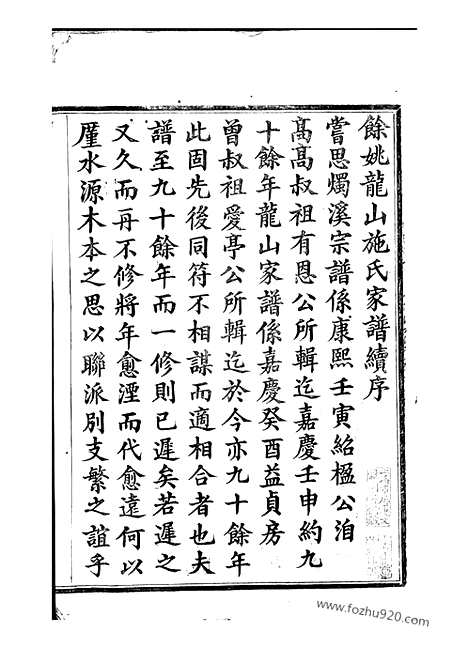 餘姚龍山施氏家譜續序
嘗思燭溪宗譜係康熙壬寅紹楹公洎
高高叔祖有恩公所輯迄嘉慶壬申約九
十餘年龍山家譜係嘉慶癸酉益貞房
曾叔祖愛亭公所輯迄於今亦九十餘年
此固先後同符不相謀而適相合者也夫
譜至九十餘年而一修則已遲矣若遲之
又久而再不修將年愈湮而代愈遠何以
厪水源木本之思以聯派別支繁之誼乎
www.fozhu920.com